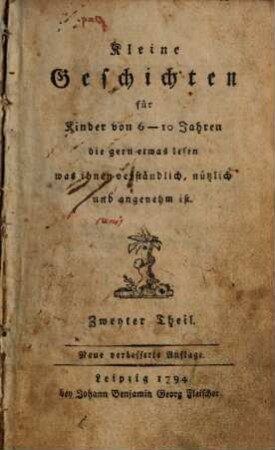 Kleine
Geschichten
für
Kinder von 6—10 Jahren
die gern etwas lesen
was ihnen verständlich, nützlich
und angenehm ist.
Zweyter Theil.
Neue verbesserte Auflage.
Leipzig 1794
bey Johann Benjamin Georg Fleischer.